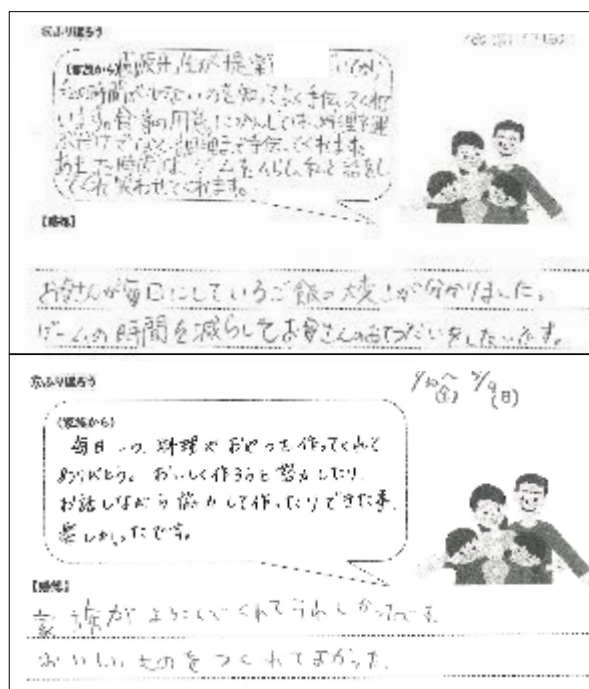 をふりほろう
(家族から)
私の時間が少ないのを知ってよく手伝ってくれて
います。食事の用意にかんしては、料理を運
ぶだけではなく、調理まで手伝ってくれます。
あまった時間は、ゲームをへらし私と話をし
てくれ笑わせてくれます。
【感想】
お母さんが毎日にしているご飯の大変さが分かりました。
ゲームの時間を減らしてお母さんのおてつだいをしたいです。
をふりほろう
4/30〜 5/9
(金) (日)
(家族から)
毎日一つ、料理やおやつを作ってくれて
ありがとう。おいしく作ろうと努力したり、
お話しながら協力して作ったりできた事、
楽しかったです。
【感想】
家族がよろこんでくれてうれしかったです。
おいしいものをつくれてよかった。